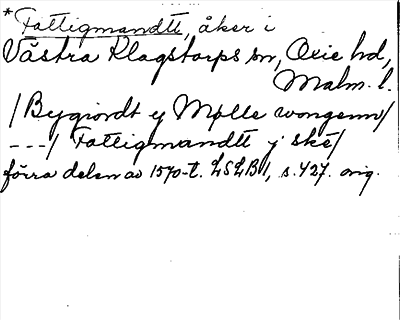 *Fattigmandtt, åker i
Västra Klagstorps sn, Oxie hd,
Malm. l.
/Bygiordt y Mølle wongenn/
---/ Fattigmandtt j skě/
förra delen av 1570-t. LSLB1, s. 427. orig.